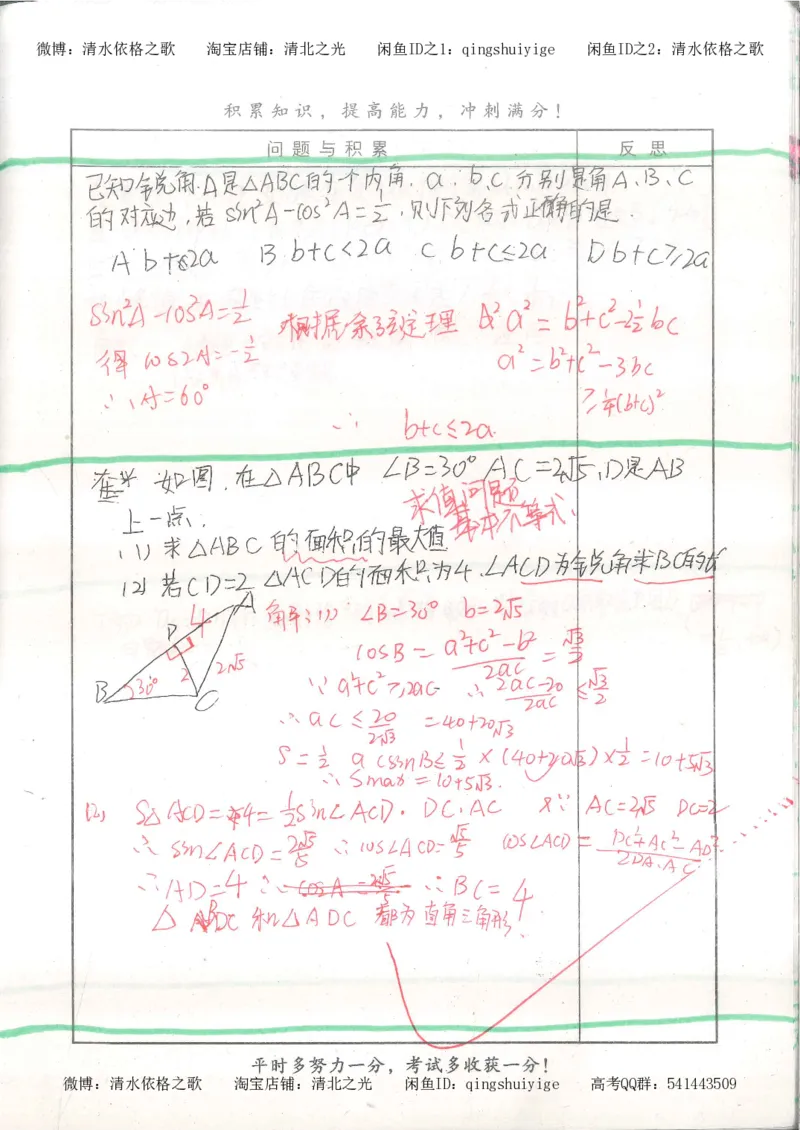 微博：清水依格之歌 淘宝店铺：清北之光 闲鱼ID之1：qingshuiyige 闲鱼ID之2：清水依格之歌
积累知识，提高能力，冲刺满分！
问题与积累 反思
已知锐角A是△ABC的一个内角，a、b、c分别是角A、B、C
的对应边，若sin²A-cos²A=1/2，则下列各式正确的是．
A b+c=2a B b+c<2a C b+c≤2a D b+c≥2a
sin²A-cos²A=1/2 根据余弦定理 a²=b²+c²-2·1/2bc
得 cos2A=-1/2 a²=b²+c²-3bc
∴A=60° ≥1/4(b+c)²
∴ b+c≤2a
如图，在△ABC中 ∠B=30° AC=2√5，D是AB
求值问题
上一点．
基本不等式
(1) 求△ABC的面积的最大值
(2) 若CD=2 △ACD的面积为4．∠ACD为锐角求BC的长
A
4
D
2 2√5
B 30° C
解：(1)∵ ∠B=30° b=2√5
cosB=(a²+c²-b²)/2ac=√3/2
∵a²+c²≥2ac ∴(2ac-20)/2ac≤√3/2
∴ac≤20/2√3 =40+20√3
S=1/2acsinB≤1/2×(40+20√3)×1/2=10+5√3
∴Smax=10+5√3.
(2) S△ACD=4=1/2sin∠ACD·DC·AC 又∵ AC=2√5 DC=2
∴sin∠ACD=2√5/5 ∴cos∠ACD=√5/5 cos∠ACD=(DC²+AC²-AD²)/2DA·AC
∴AD=4 ∴BC=4
△BDC和△ADC都为直角三角形
平时多努力一分，考试多收获一分！
微博：清水依格之歌 淘宝店铺：清北之光 闲鱼ID：qingshuiyige 高考QQ群：541443509